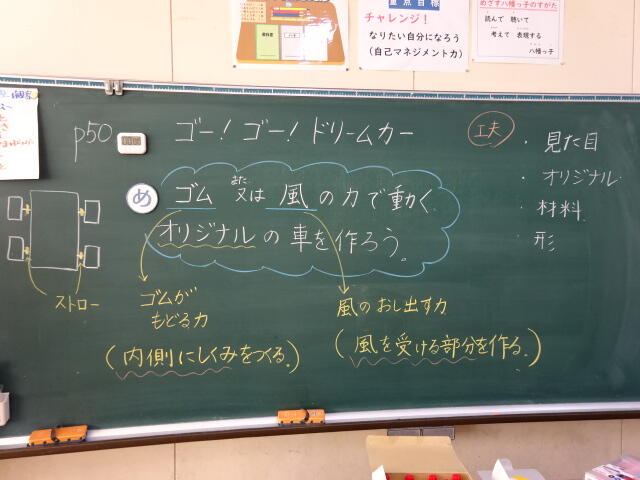 重点目標
チャレンジ！
なりたい自分になろう
（自己マネジメント力）
めざす八幡っ子のすがた
読んで 聴いて
考えて 表現する
八幡っ子
p50
ゴー！ゴー！ドリームカー
め
ゴム又は風の力で動く
また
オリジナルの車を作ろう。
工夫
・見た目
・オリジナル
・材料
・形
ストロー
ゴムが
もどる力
（内側にしくみをつくる。）
風のおし出す力
（風を受ける部分を作る。）